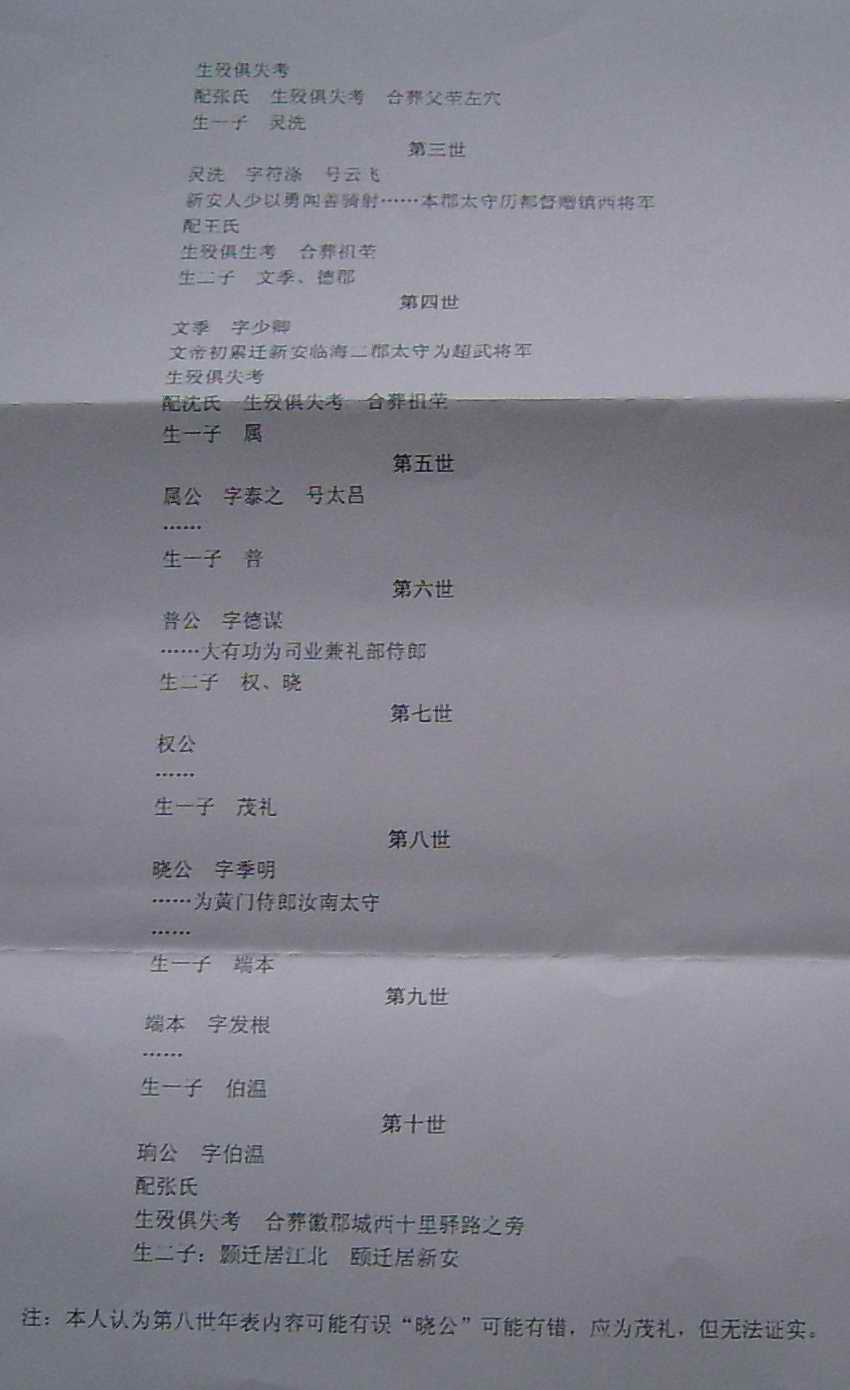 生殁俱失考
配张氏　生殁俱失考　合葬父茔左穴
生一子　灵洗
第三世
灵洗　字符涤　号云飞
新安人少以勇闻善骑射……本郡太守历都督赠镇西将军
配王氏
生殁俱生考　合葬祖茔
生二子　文季、德郡
第四世
文季　字少卿
文帝初累迁新安临海二郡太守为超武将军
生殁俱失考
配沈氏　生殁俱失考　合葬祖茔
生一子　属
第五世
属公　字泰之　号太吕
……
生一子　普
第六世
普公　字德谋
……大有功为司业兼礼部侍郎
生二子　权、晓
第七世
权公
……
生一子　茂礼
第八世
晓公　字季明
……为黄门侍郎汝南太守
……
生一子　端本
第九世
端本　字发根
……
生一子　伯温
第十世
珦公　字伯温
配张氏
生殁俱失考　合葬徽郡城西十里驿路之旁
生二子：颢迁居江北　颐迁居新安
注：本人认为第八世年表内容可能有误“晓公”可能有错，应为茂礼，但无法证实。